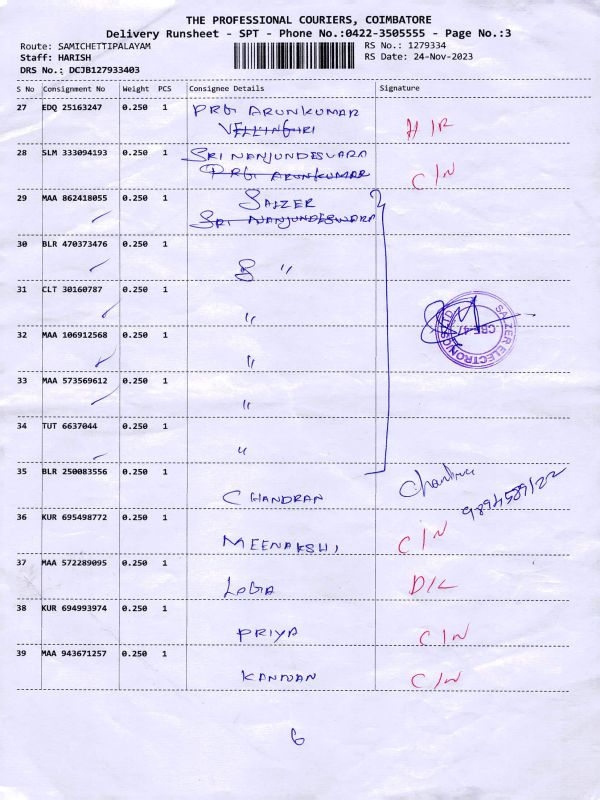 THE PROFESSIONAL COURIERS, COIMBATORE
Delivery Runsheet - SPT - Phone No.:0422-3505555 - Page No.:3
Route: SAMICHETTIPALAYAM RS No.: 1279334
Staff: HARISH RS Date: 24-Nov-2023
DRS No.: DCJB127933403
S No Consignment No Weight PCS Consignee Details Signature
27 EDQ 25163247 0.250 1 PRG ARUNKUMAR
VELLINGIRI H/R
28 SLM 333094193 0.250 1 SRI NANJUNDESVARA
PRG ARUNKUMAR C/N
29 MAA 862418055 0.250 1 SALZER
SRI NANJUNDESWARA
30 BLR 470373476 0.250 1 S "
31 CLT 30160787 0.250 1 "
32 MAA 106912568 0.250 1 "
SALZER ELECTRONICS LTD
CBE-47
33 MAA 573569612 0.250 1 "
34 TUT 6637044 0.250 1 "
35 BLR 250083556 0.250 1 CHANDRAN
36 KUR 695498772 0.250 1 MEENAKSHI C/N
37 MAA 572289095 0.250 1 LOGIA D/L
38 KUR 694993974 0.250 1 PRIYA C/N
39 MAA 943671257 0.250 1 KANNAN C/N
6